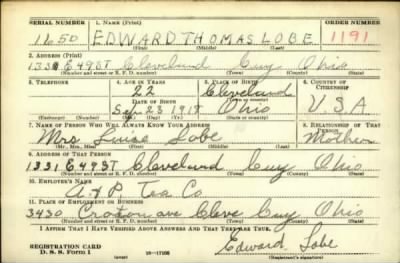 SERIAL NUMBER 1. NAME (Print) ORDER NUMBER
1650 EDWARD THOMAS LOBE 1191
(First) (Middle) (Last)
2. ADDRESS (Print)
1331 E 49 ST Cleveland Cuy Ohio
(Number and street or R. F. D. number) (Town) (County) (State)
3. TELEPHONE 4. AGE IN YEARS 5. PLACE OF BIRTH 6. COUNTRY OF CITIZENSHIP
22 Cleveland
DATE OF BIRTH (Town or county)
Sep 28 1918 Ohio U S A
(Exchange) (Number) (Mo.) (Day) (Yr.) (State or country)
7. NAME OF PERSON WHO WILL ALWAYS KNOW YOUR ADDRESS 8. RELATIONSHIP OF THAT PERSON
Mrs Louise Lobe Mother
(Mr., Mrs., Miss) (First) (Middle) (Last)
9. ADDRESS OF THAT PERSON
1331 E 49 ST Cleveland Cuy Ohio
(Number and street or R. F. D. number) (Town) (County) (State)
10. EMPLOYER'S NAME
A & P Tea Co
11. PLACE OF EMPLOYMENT OR BUSINESS
3430 Croton ave Cleve Cuy Ohio
(Number and street or R. F. D. number) (Town) (County) (State)
I AFFIRM THAT I HAVE VERIFIED ABOVE ANSWERS AND THAT THEY ARE TRUE.
REGISTRATION CARD
D. S. S. Form 1 (over) 16—17105 Edward Lobe
(Registrant's signature)